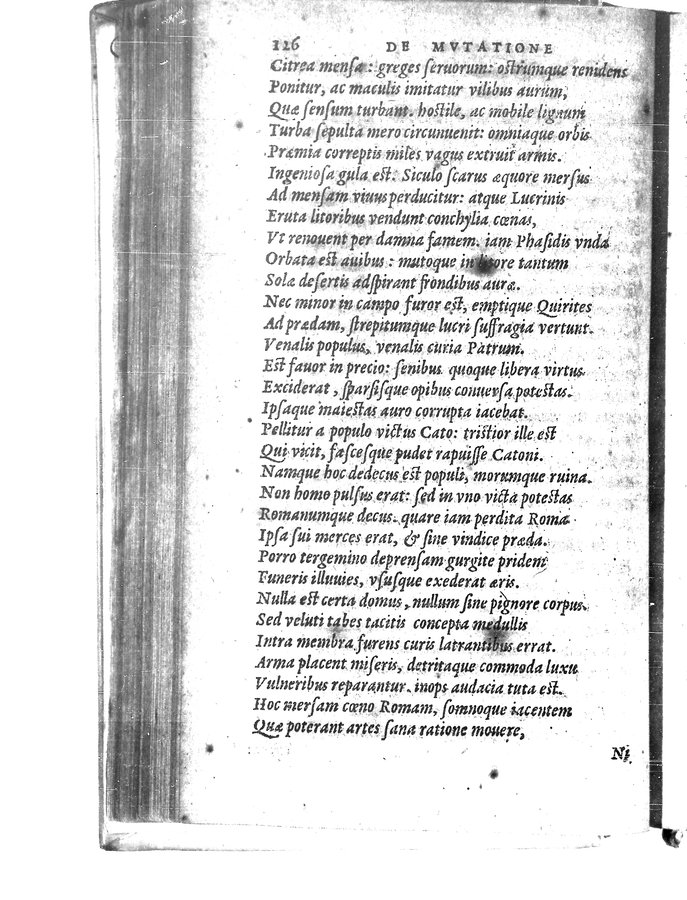 126 DE MVTATIONE
Citrea mensæ : greges seruorum: ostrumque renidens
Ponitur, ac maculis imitatur vilibus aurum,
Quæ sensum turbant. hostile, ac mobile lignum
Turba sepulta mero circunuenit: omniaque orbis
Præmia correptis miles vagus extruit armis.
Ingeniosa gula est. Siculo scarus æquore mersus
Ad mensam viuus perducitur: atque Lucrinis
Eruta litoribus vendunt conchylia cœnas,
Vt renouent per damna famem. iam Phasidis vnda
Orbata est auibus : mutoque in litore tantum
Solæ desertis adspirant frondibus auræ.
Nec minor in campo furor est, emptique Quirites
Ad prædam, strepitumque lucri suffragia vertunt.
Venalis populus, venalis curia Patrum.
Est fauor in precio: senibus quoque libera virtus
Exciderat, sparsisque opibus conuersa potestas.
Ipsaque maiestas auro corrupta iacebat.
Pellitur a populo victus Cato: tristior ille est
Qui vicit, fascesque pudet rapuisse Catoni.
Namque hoc dedecus est populi, morumque ruina.
Non homo pulsus erat: sed in vno victa potestas
Romanumque decus. quare iam perdita Roma
Ipsa sui merces erat, & sine vindice præda.
Porro tergemino deprensam gurgite pridem
Funeris illuuies, vsusque exederat æris.
Nulla est certa domus, nullum sine pignore corpus.
Sed veluti tabes tacitis concepta medullis
Intra membra furens curis latrantibus errat.
Arma placent miseris, detritaque commoda luxu
Vulneribus reparantur. inops audacia tuta est.
Hoc mersam cœno Romam, somnoque iacentem
Quæ poterant artes sana ratione mouere,
Ni